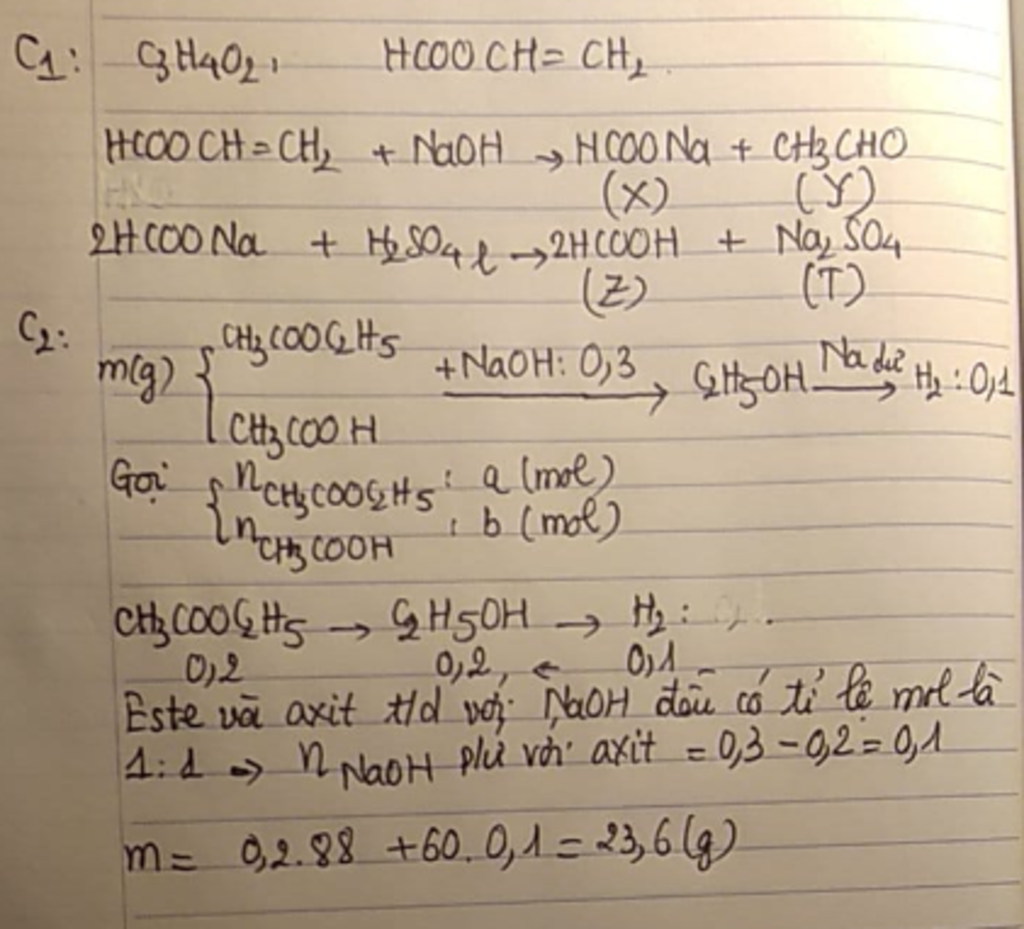 C1: C3H4O2, HCOOCH=CH2.
HCOOCH=CH2 + NaOH → HCOONa + CH3CHO
(X) (Y)
2HCOONa + H2SO4 l → 2HCOOH + Na2SO4
(Z) (T)
C2:
m(g) { CH3COOC2H5 +NaOH: 0,3 → C2H5OH Na dư → H2: 0,1
CH3COOH
Gọi { nCH3COOC2H5 : a (mol)
nCH3COOH : b (mol)
CH3COOC2H5 → C2H5OH → H2 :
0,2 0,2 ← 0,1
Este và axit t/d với NaOH đều có tỉ lệ mol là
1:1 → nNaOH pứ với axit = 0,3 - 0,2 = 0,1
m = 0,2.88 + 60.0,1 = 23,6 (g)